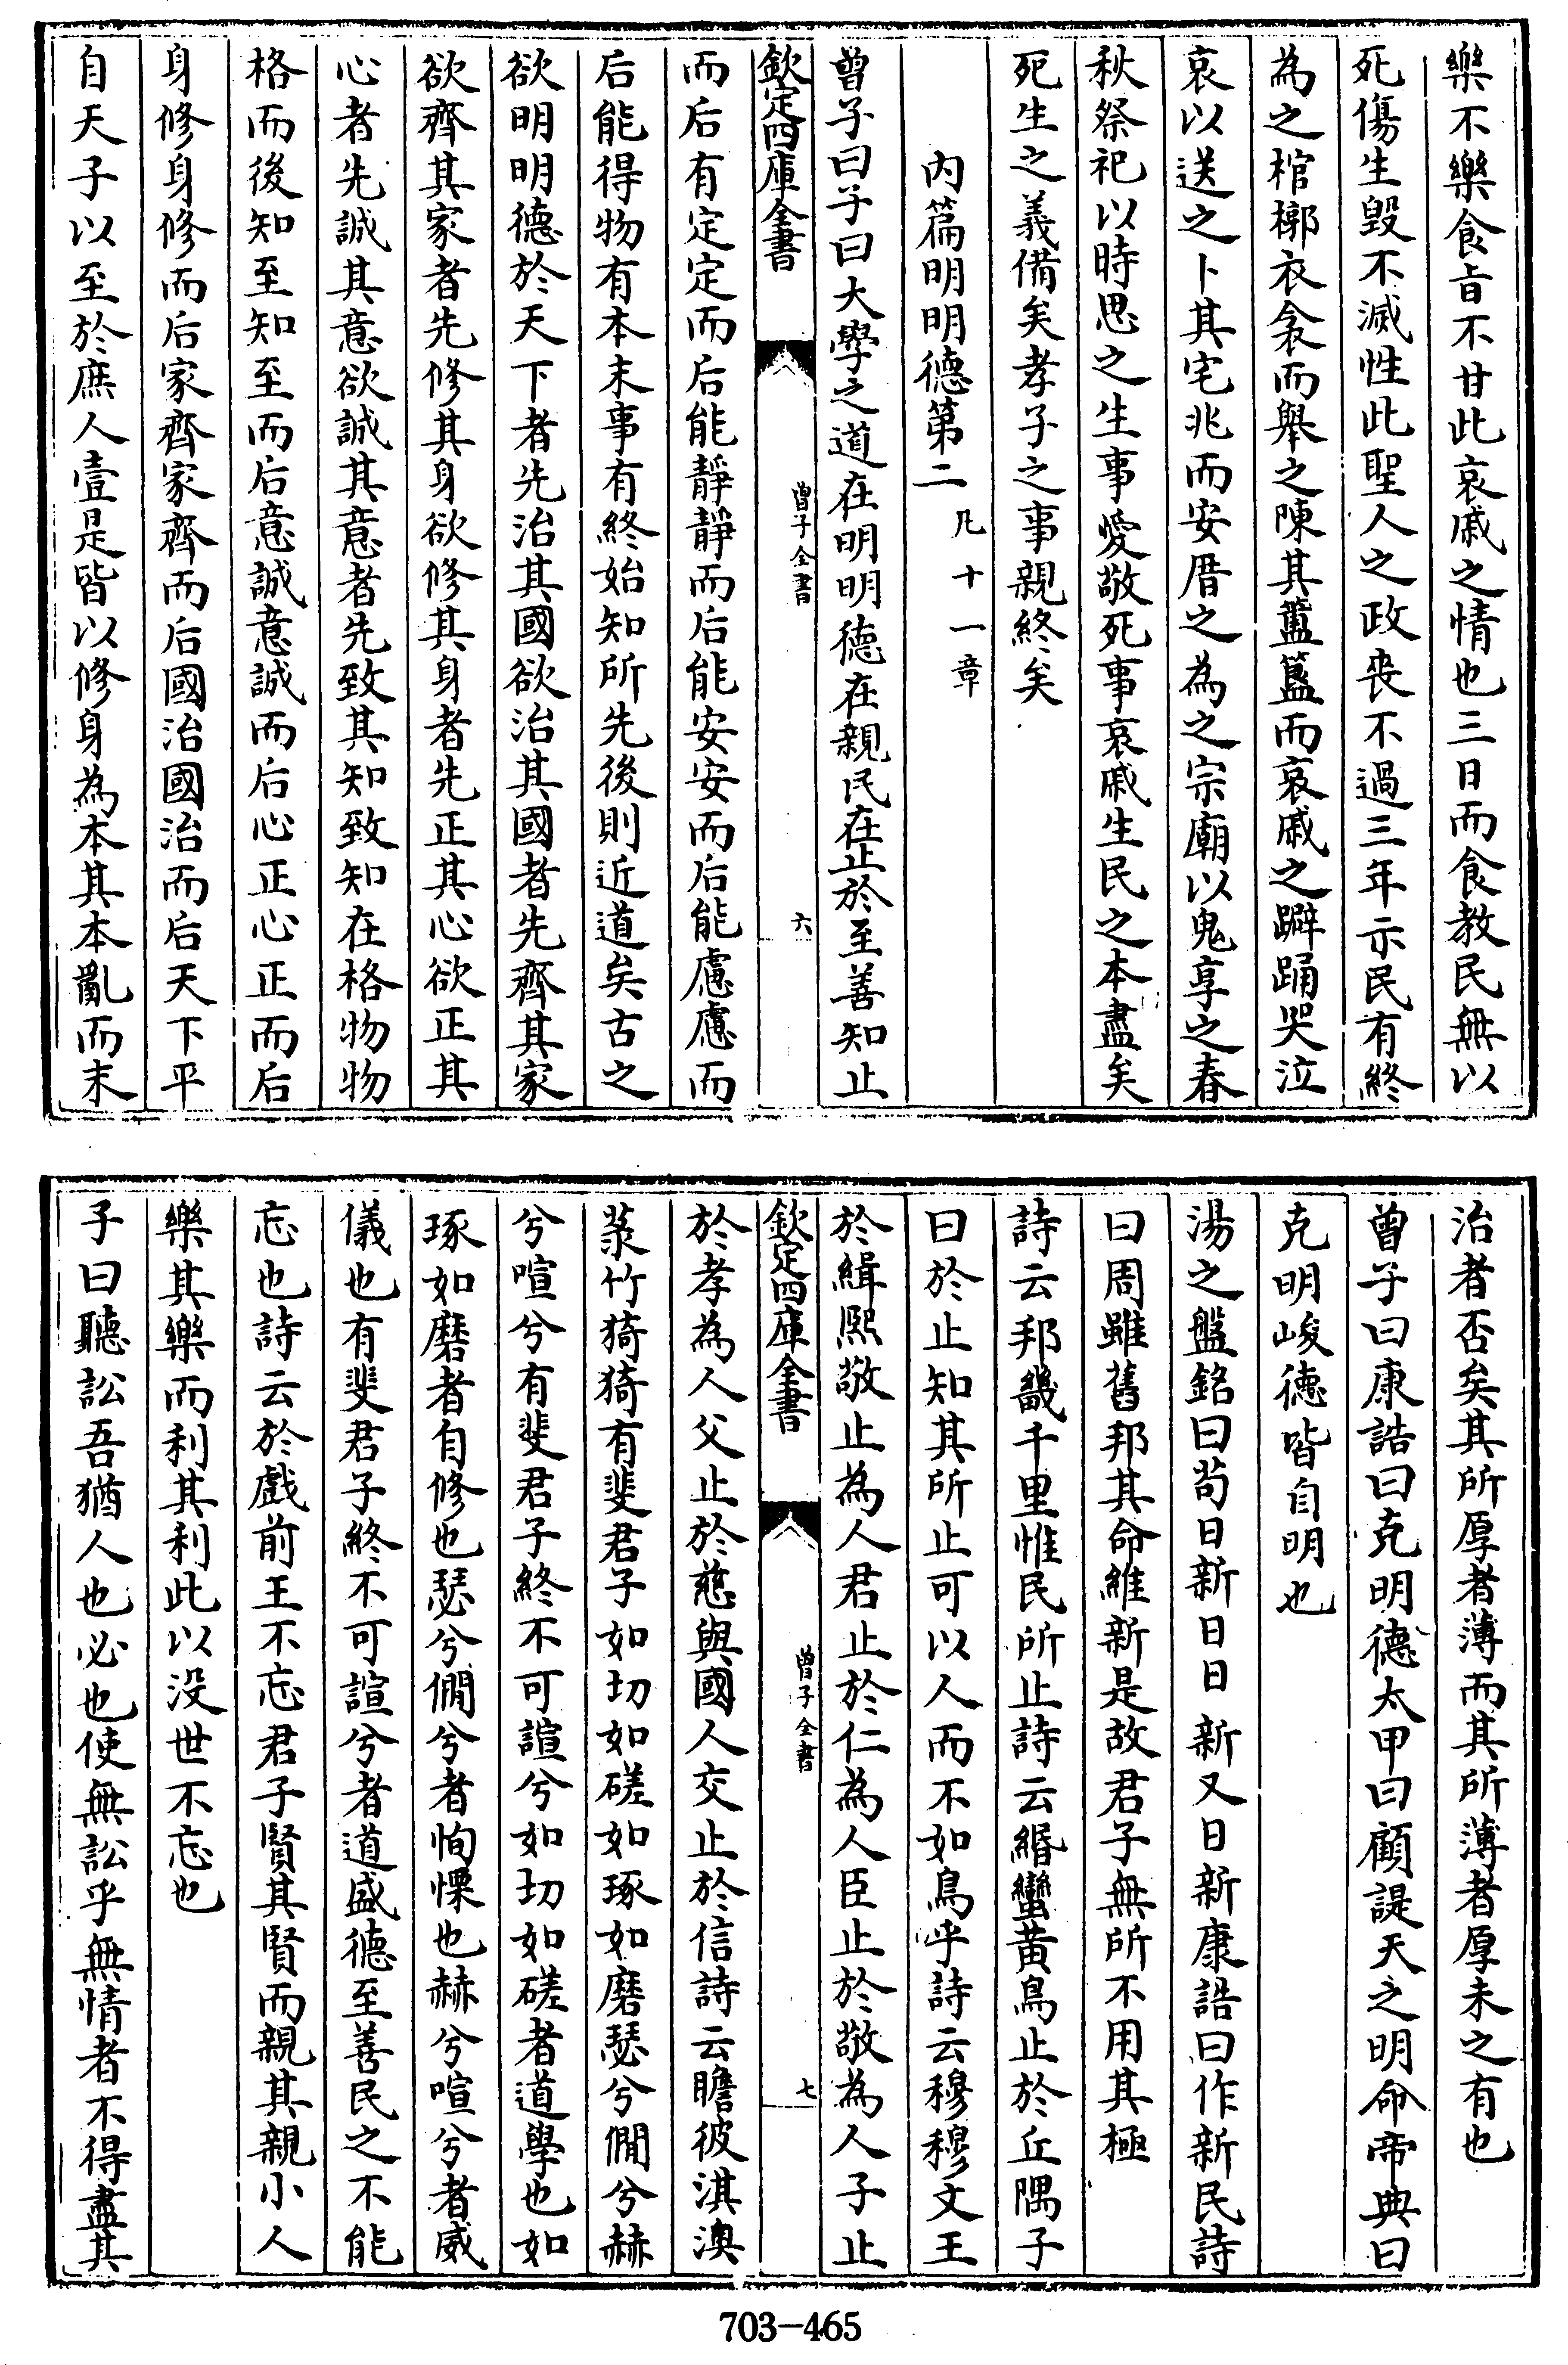 樂不樂食旨不甘此哀戚之情也三日而食教民無以
死傷生毀不滅性此聖人之政喪不過三年示民有終
為之棺槨衣衾而舉之陳其簠簋而哀戚之躃踊哭泣
哀以送之卜其宅兆而安厝之為之宗廟以鬼享之春
秋祭祀以時思之生事愛敬死事哀戚生民之本盡矣
死生之義備矣孝子之事親終矣
內篇明明德第二 凡十一章
曾子曰子曰大學之道在明明德在親民在止於至善知止
欽定四庫全書 曾子全書 六
而后有定定而后能靜靜而后能安安而后能慮慮而
后能得物有本末事有終始知所先後則近道矣古之
欲明明德於天下者先治其國欲治其國者先齊其家
欲齊其家者先修其身欲修其身者先正其心欲正其
心者先誠其意欲誠其意者先致其知致知在格物物
格而後知至知至而后意誠意誠而后心正心正而后
身修身修而后家齊家齊而后國治國治而后天下平
自天子以至於庶人壹是皆以修身為本其本亂而末
治者否矣其所厚者薄而其所薄者厚未之有也
曾子曰康誥曰克明德太甲曰顧諟天之明命帝典曰
克明峻德皆自明也
湯之盤銘曰苟日新日日新又日新康誥曰作新民詩
曰周雖舊邦其命維新是故君子無所不用其極
詩云邦畿千里惟民所止詩云緡蠻黃鳥止於丘隅子
曰於止知其所止可以人而不如鳥乎詩云穆穆文王
於緝熙敬止為人君止於仁為人臣止於敬為人子止
欽定四庫全書 曾子全書 七
於孝為人父止於慈與國人交止於信詩云瞻彼淇澳
菉竹猗猗有斐君子如切如磋如琢如磨瑟兮僩兮赫
兮喧兮有斐君子終不可諠兮如切如磋者道學也如
琢如磨者自修也瑟兮僩兮者恂慄也赫兮喧兮者威
儀也有斐君子終不可諠兮者道盛德至善民之不能
忘也詩云於戲前王不忘君子賢其賢而親其親小人
樂其樂而利其利此以没世不忘也
子曰聽訟吾猶人也必也使無訟乎無情者不得盡其
703-465